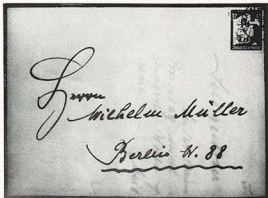 12
Herrn
Wilhelm Müller
Berlin W. 88